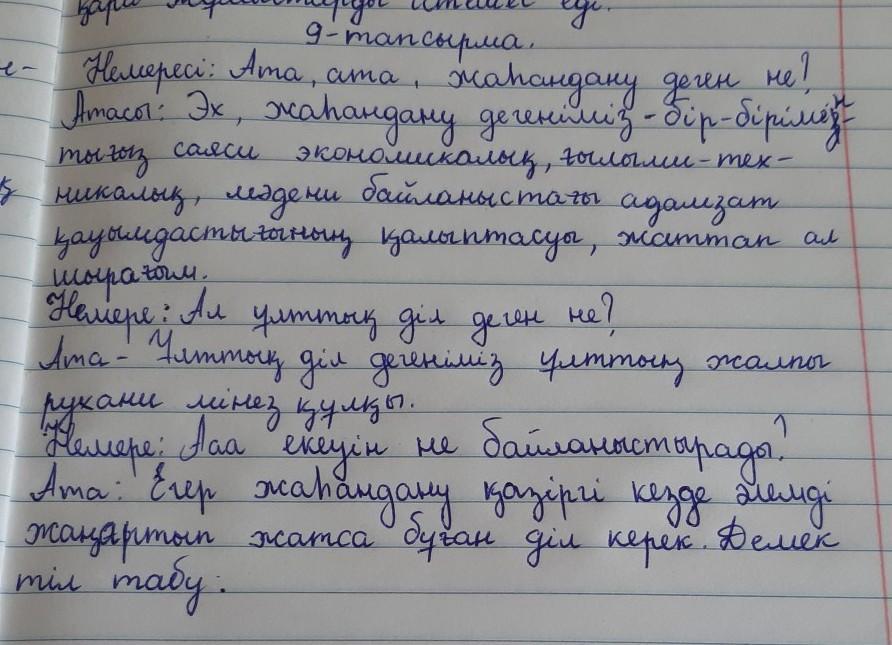 қари
еді.
9-тапсырма.
Немересі: Ата, ата, жаһандану деген не?
Атасы: Эх, жаһандану дегеніміз - бір-біріме
тығыз саяси экономикалық, ғылыми-тех-
никалық, мәдени байланыстағы адамзат
қауымдастығының қалыптасуы, жаттап ал
шырағым.
Немере: Ал ұлттық діл деген не?
Ата - Ұлттық діл дегеніміз ұлттың жалпы
рухани мінез құлқы.
Немере: Ааа екеуін не байланыстырады?
Ата: Егер жаһандану қазіргі кезде әлемді
жаңартып жатса бұған діл керек. Демек
тіл табу.